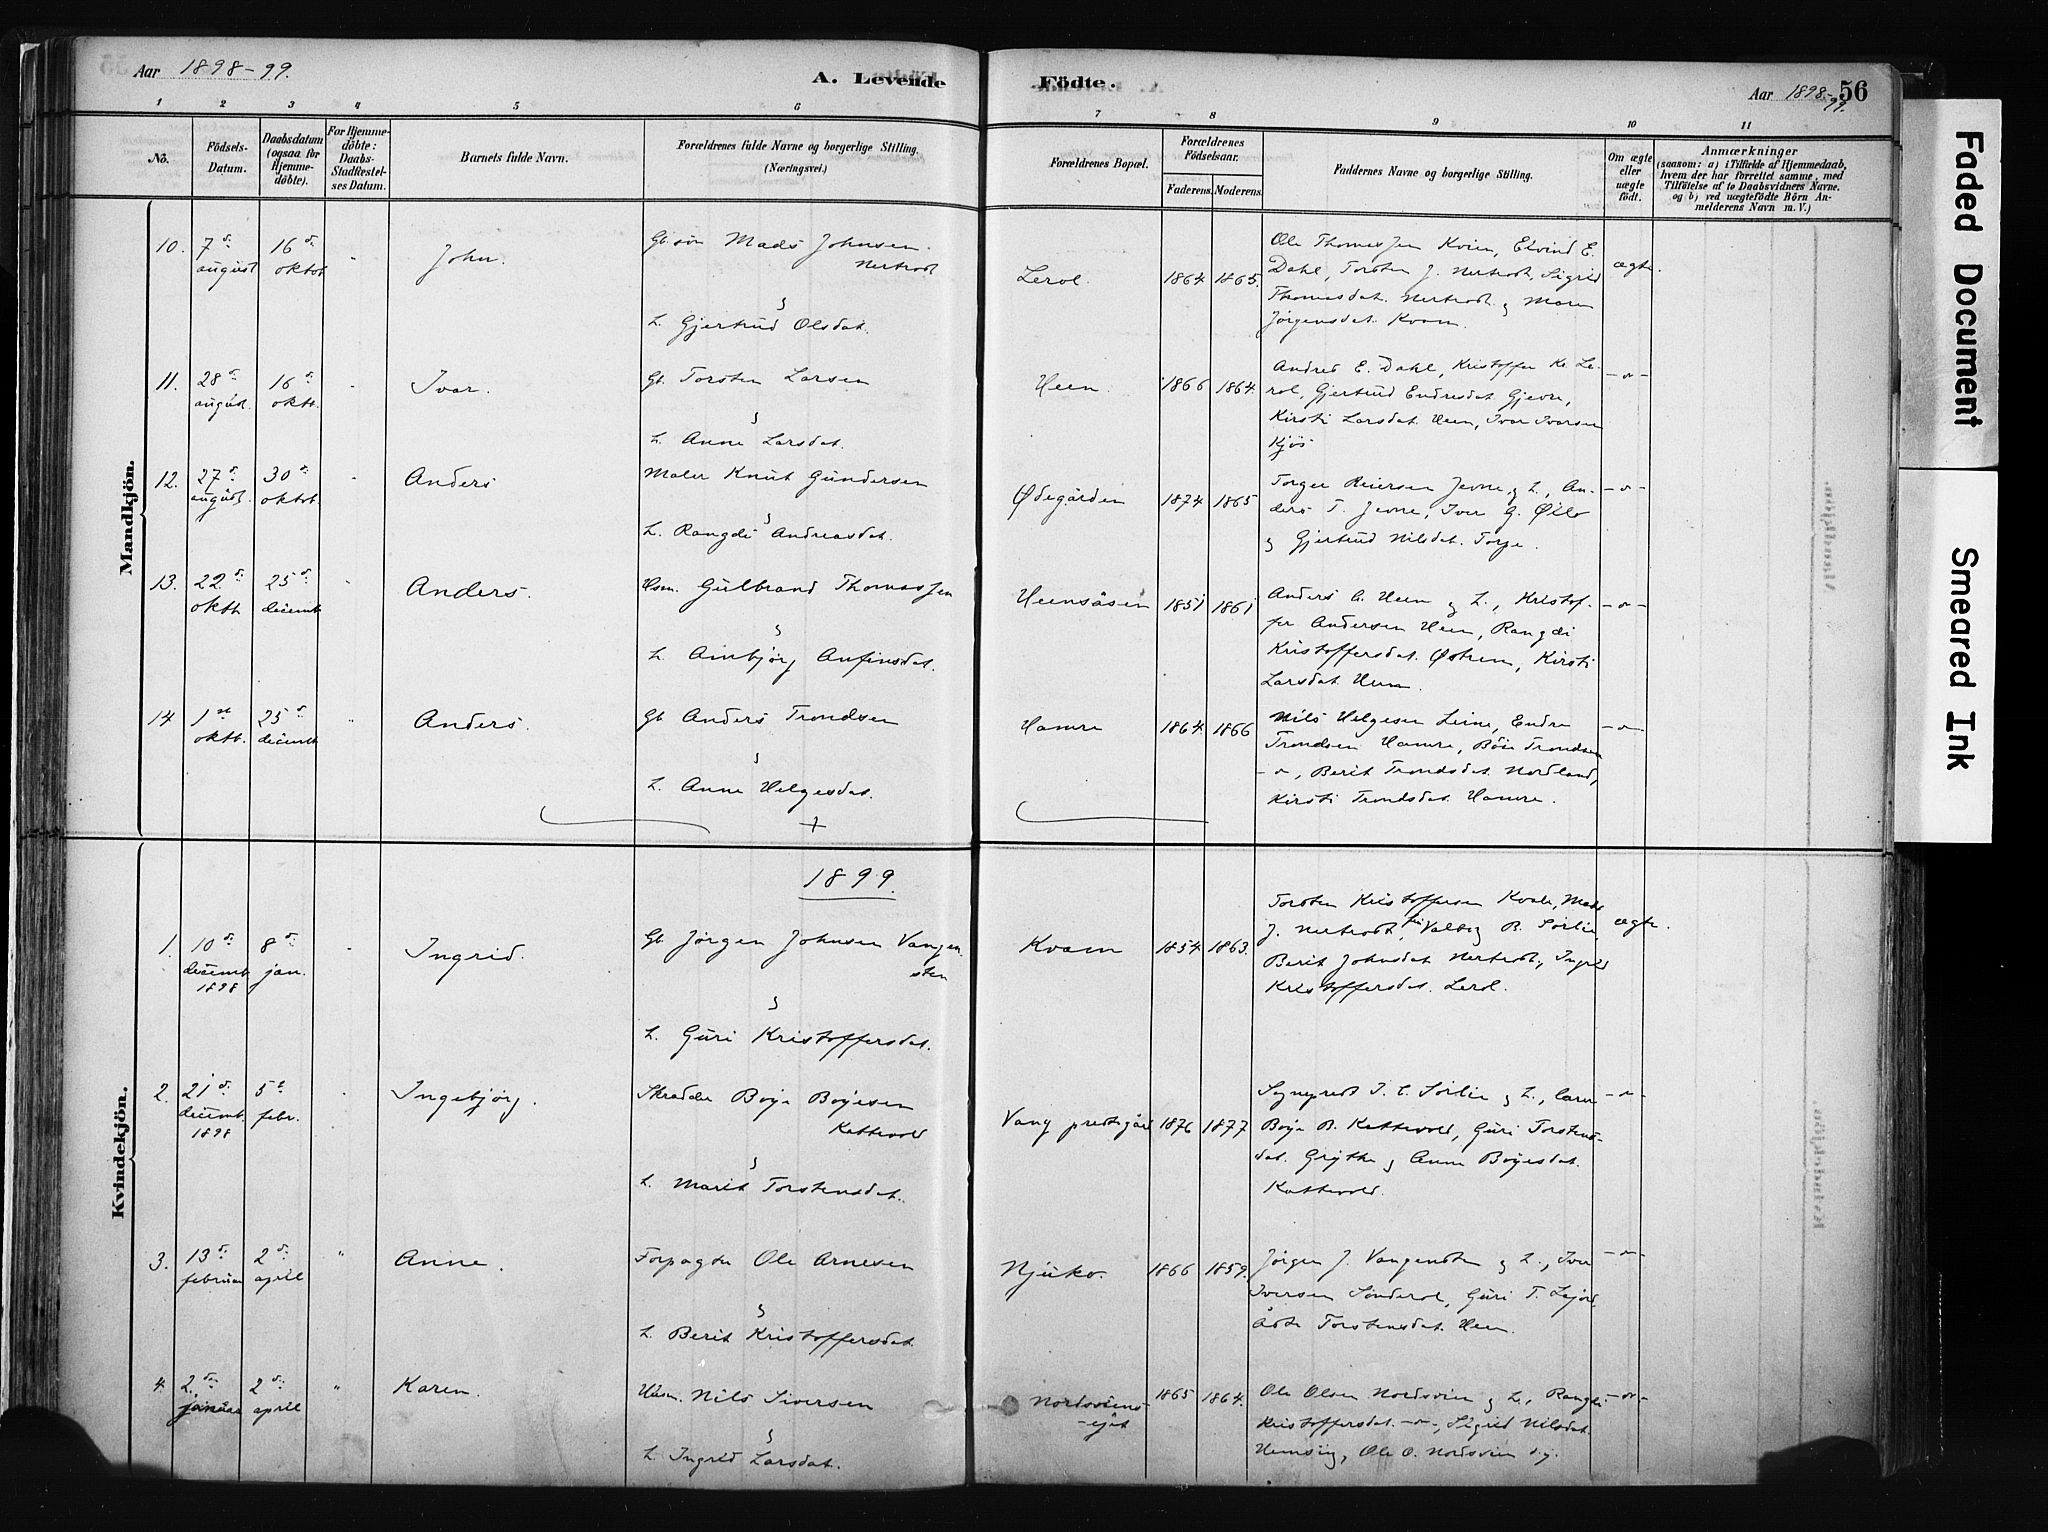 Aar 1898-99.
A. Levende
Födte.
Aar 1898-99.
56
1 2 3 4 5 6 7 8 9 10 11
No.
Födsels-
Datum.
Daabsdatum
(ogsaa for
Hjemme-
döbte).
For Hjemme-
döbte:
Daabs-
Stadfæstel-
ses Datum.
Barnets fulde Navn.
Forældrenes fulde Navne og borgerlige Stilling.
(Næringsvei.)
Forældrenes Bopæl.
Forældrenes
Födselsaar.
Faderens. Moderens.
Faddernes Navne og borgerlige Stilling.
Om ægte
eller
uægte
födt.
Anmærkninger
(saasom: a) i Tilfælde af Hjemmedaab,
hvem der har forrettet samme, med
Tilföielse af to Daabsvidners Navne,
og b) ved uægtefödte Börn An-
melderens Navn m. V.)
Mandkjön.
10. 7 d. august 16 d. oktob. " John.
Gb. søn Mads Johnsen
Nertrost
&
h. Gjertrud Olsdat.
Lerol. 1864 1865.
Ole Thomassen Kvien, Eivind E.
Dahl, Torsten J. Nertrost, Sigrid
Thomasdat. Nertrost & Maren
Jørgensdat. Kvam.
ægte.
11. 28 d. august. 16 d. oktb. " Ivar.
Gb. Torsten Larsen
&
h. Anne Larsdat.
Heen. 1866 1864.
Andres E. Dahl, Kristoffer Kr. Le-
rol, Gjertrud Endresdat. Gjevre,
Kirsti Larsdat. Heen, Ivar Ivarsen
Kjøs
-"-
12. 27 d. august. 30 d. oktob. " Anders
Maler Knut Gundersen
&
h. Rangdi Andreasdat.
Ødegården 1874 1865
Torger Reiersen Jevne & h., An-
ders T. Jevne, Iver G. Øilo
& Gjertrud Nilsdat. Torge.
-"-
13. 22 d. oktb. 25 d. decemb. " Anders.
Hsm. Gulbrand Thomassen
&
h. Ambjørg Anfinsdat.
Heensåsen 1851 1861
Anders A. Heen & h., Kristof-
fer Andersen Heen, Rangdi
Kristoffersdat. Østrem, Kirsti
Larsdat. Heen.
-"-
14 1 ste oktb. 25 d. decemb. " Anders.
Gb. Anders Trondsen
&
h. Anne Helgesdat.
Hamre 1864. 1866
Nils Helgesen Leine, Endre
Trondsen Hamre, Bøie Trondsen
-"-, Berit Trondsdat. Nordland,
Kirsti Trondsdat. Hamre.
-"-
Kvindekjön.
1899.
1. 10 d. decemb. 1898 8 d. jan. " Ingrid.
Gb. Jørgen Johnsen Vangen
sten
&
h. Guri Kristoffersdat.
Kvam 1854. 1863.
Torsten Kristoffersen Kvale, Mads
J. Nertrost, Valborg B. Sørlie,
Berit Johnsdat Nertrost, Ingrid
Kristoffersdat. Lerol.
ægte.
2. 21 d. decemb. 1898 5 t febr. " Ingebjørg.
Skrædder Bøye Bøyesen
Kattevold
&
h. Marit Torstensdat.
Vang prestgård 1876 1877
Sogneprest T. C. Sørlie & h.,
Bøye B. Kattevold, Guri Torstens-
dat. Grythe & Anne Bøyesdat.
Kattevold.
-"-
3. 13 d. februar 2 d. april " Anne.
Forpagter Ole Arnesen
&
h. Berit Kristoffersdat.
Njuko. 1866 1859.
Jørgen J. Vangensten & h., Iver
Iversen Sønderol, Guri T. Lejord,
Åste Torstensdat. Heen.
-"-
4. 2. den januar 2 d. april " Karen.
Husm. Nils Siversen
&
h. Ingrid Larsdat.
Nordsviens-
ejet
1865 1864.
Ole Olsen Nordsvien & h., Rangdi
Kristoffersdat. -"-, Sigrid Nilsdat.
Hemsing, Ole O. Nordsvien d.y.
-"-
Faded Document
Smeared Ink